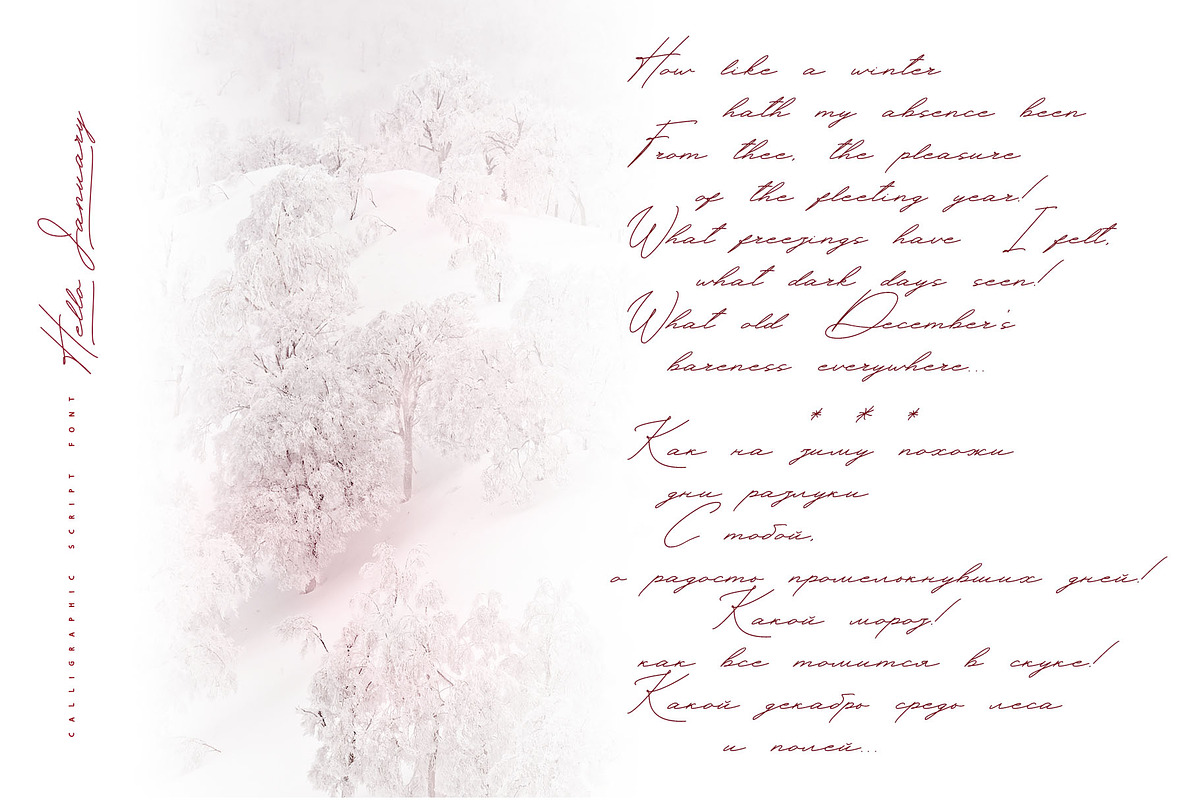 Hello January
CALLIGRAPHIC SCRIPT FONT
How like a winter
hath my absence been
From thee, the pleasure
of the fleeting year!
What freezings have I felt,
what dark days seen!
What old December's
bareness everywhere...
* * *
Как на зиму похожи
дни разлуки
С тобой,
о радость промелькнувших дней!
Какой мороз!
как все томится в скуке!
Какой декабрь средь леса
и полей...